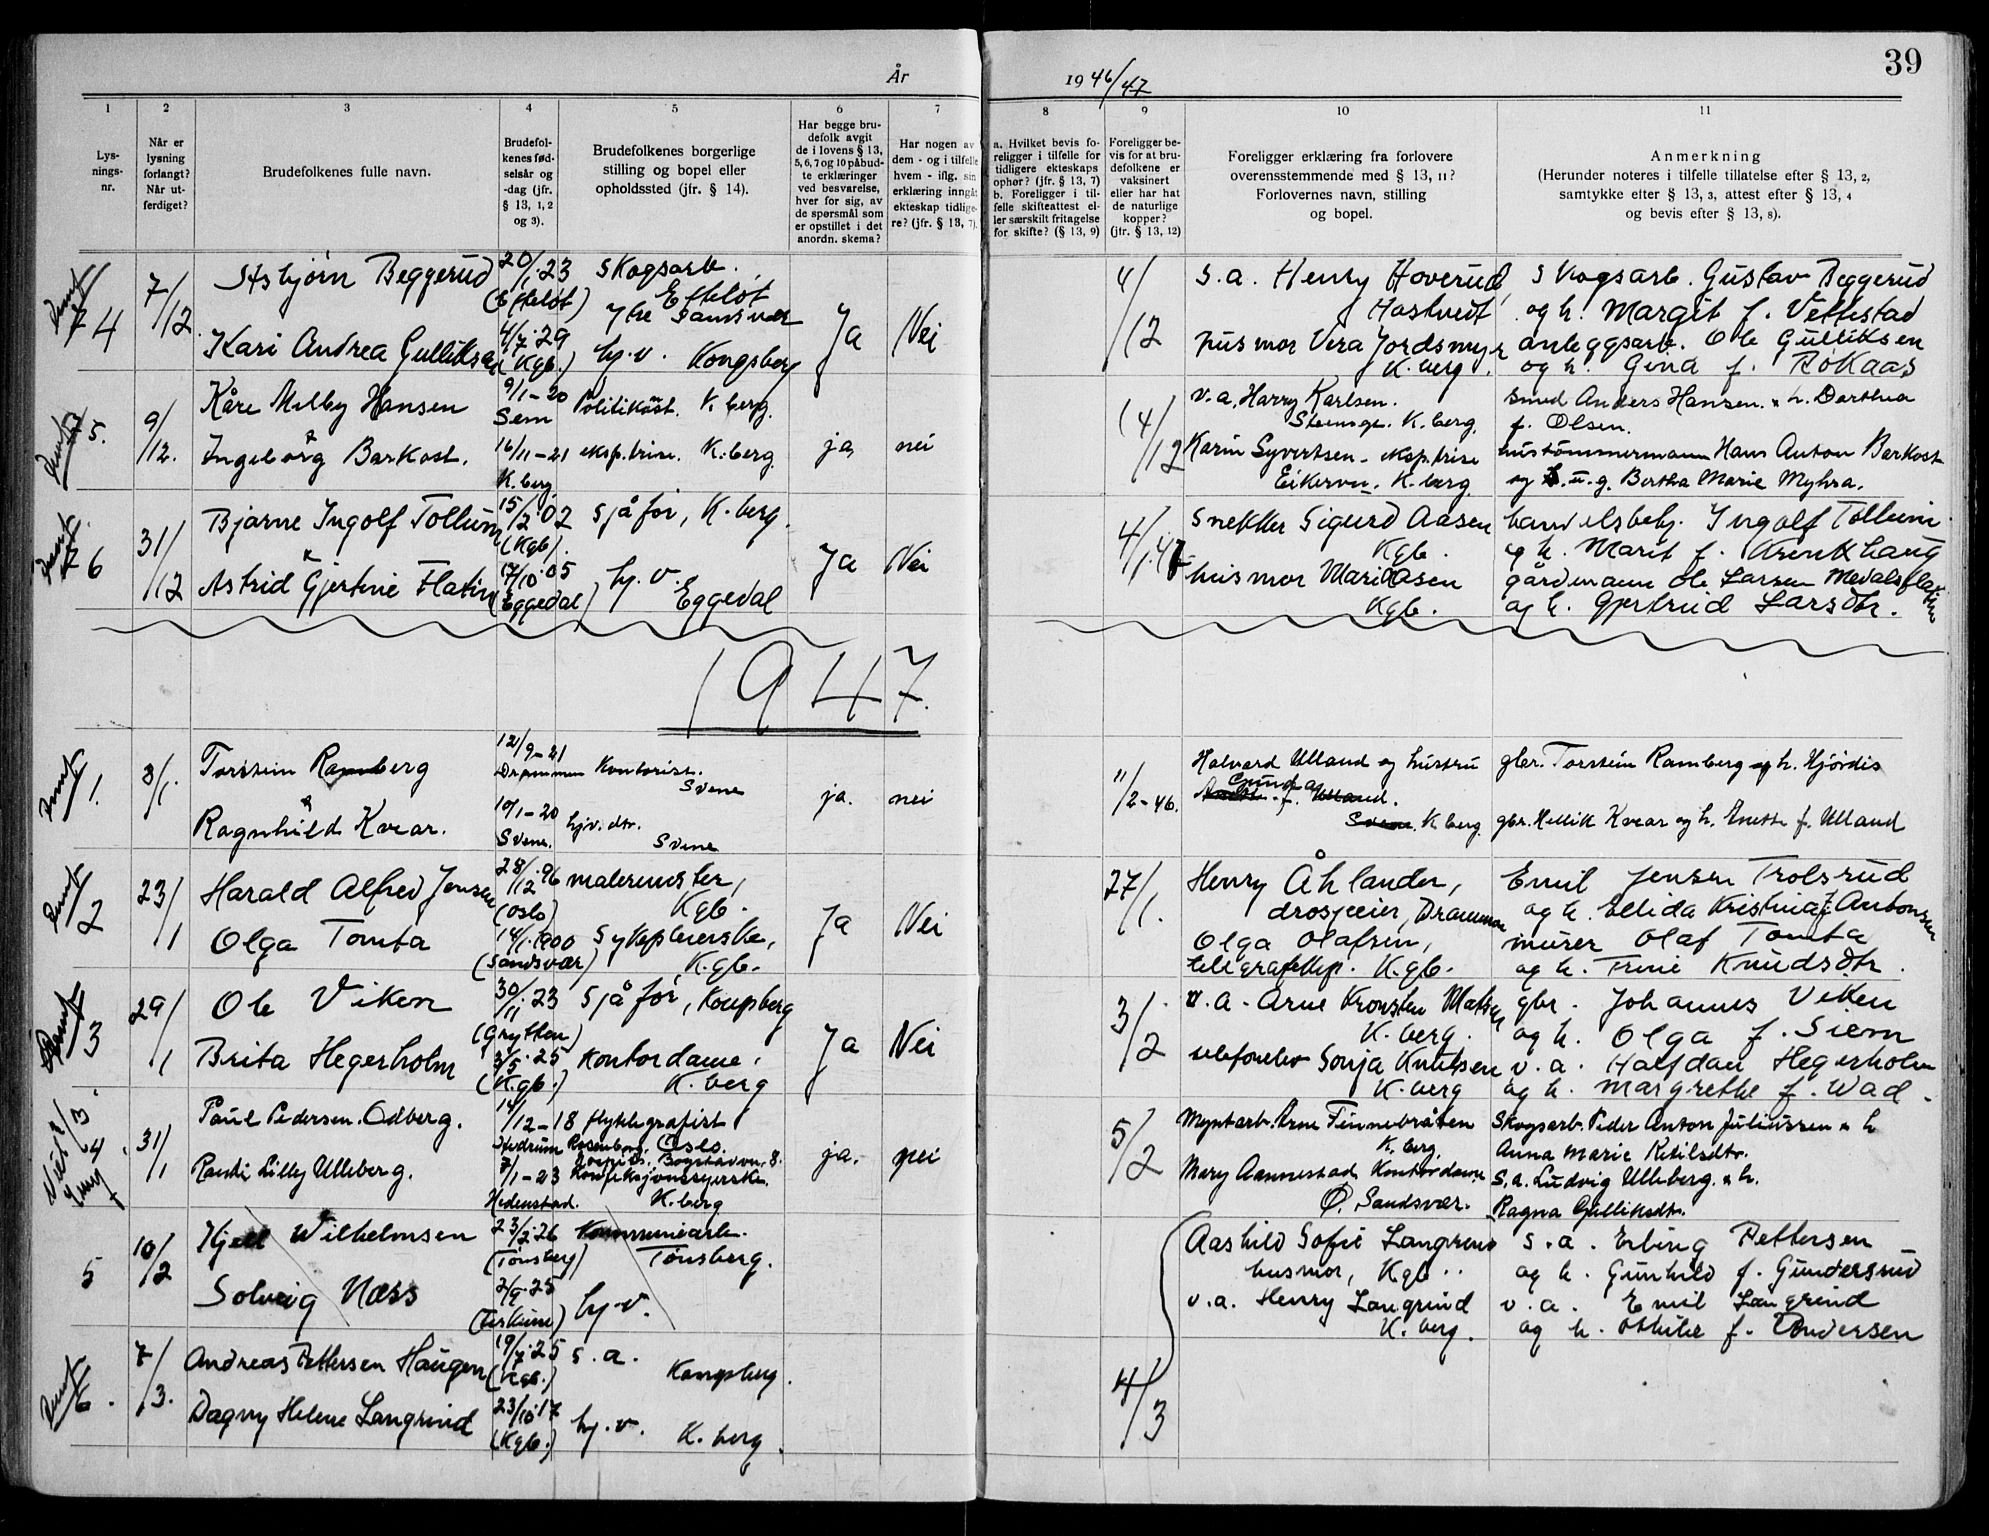 39
År
19 46/47
1
2
3
4
5
6
7
8
9
10
11
Lys-
nings-
nr.
Når er
lysning
forlangt?
Når ut-
ferdiget?
Brudefolkenes fulle navn.
Brudefol-
kenes fød-
selsår og
-dag (jfr.
§ 13, 1, 2
og 3).
Brudefolkenes borgerlige
stilling og bopel eller
opholdssted (jfr. § 14).
Har begge bru-
defolk avgit
de i lovens § 13,
5, 6, 7 og 10 påbud-
te erklæringer
ved besvarelse,
hver for sig, av
de spørsmål som
er opstillet i det
anordn. skema?
Har nogen av
dem - og i tilfelle
hvem - iflg. sin
erklæring inngått
ekteskap tidlige-
re? (jfr. § 13, 7).
a. Hvilket bevis fo-
religger i tilfelle for
tidligere ekteskaps
ophør? (jfr. § 13, 7)
b. Foreligger i til-
felle skifteattest el-
ler særskilt fritagelse
for skifte? (§ 13, 9)
Foreligger be-
vis for at bru-
defolkene er
vaksinert
eller har hat
de naturlige
kopper?
(jfr. § 13, 12)
Foreligger erklæring fra forlovere
overensstemmende med § 13, 11?
Forlovernes navn, stilling
og bopel.
Anmerkning
(Herunder noteres i tilfelle tillatelse efter § 13, 2,
samtykke efter § 13, 3, attest efter § 13, 4
og bevis efter § 13, 8).
74
7/12
Asbjørn Beggerud
20/1.23
(Efteløt)
Skogsarb.
Efteløt
Ytre Sandsvær
Kari Andrea Gulliksen
4/7.29
(Kgb.)
hj.v. Kongsberg
Ja
Nei
4/12
s.a. Henry Hoverud
Hostvedt
husmor Vera Jordsmyr
K.berg.
Skogsarb. Gustav Beggerud
og h. Margit f. Vettestad
anleggsarb. Ole Gulliksen
og h. Gina f. Bøkaas
75.
9/12.
Kåre Melby Hansen
9/1-20
Sem
Politikonst. K.berg.
Ingeborg Barkost.
16/11-21
K.berg
eksp.trise. K.berg.
ja
nei
14/12
v.a. Harry Karlsen.
Stemgr. K.berg.
Karin Syvertsen - eksp.trise
Eikervn. K.berg.
smed Anders Hansen. & h. Dorthea
f. Olsen.
hustømmermann Hans Anton Barkost
og h. u.g. Bertha Marie Myhra.
76
31/12
Bjarne Ingolf Tollum
15/2.02
(Kgb).
Sjåfør, K.berg.
Astrid Gjertine Flatin
17/10.05
(Eggedal)
hj.v. Eggedal
Ja
Nei
4/1.47
Snekker Sigurd Aasen
Kgb.
husmor Mari Aasen
Kgb.
handelsbetj. Ingolf Tollum
og h. Marit f. Krenkhaug
gårdmann Ole Larsen Medalsflatin
og h. Gjertrud Larsdtr.
1947.
1.
3/1.
Torstein Ramberg
12/9-21
Drammen
Kontorist.
Svene
Ragnhild Kvar.
10/1-20
Svene.
hjv. dtr.
Svene
ja.
nei
11/2-46.
Halvard Ulland og hustru
Gunda
f. Ulland.
Svene. K.berg.
gbr. Torstein Ramberg og h. Hjørdis
gbr. Hellik Kvar og h. Anette f. Ulland
2
23/1
Harald Alfred Jensen
28/12.96
(Oslo)
malermester,
Kgb.
Olga Tomta
14/1.1900
(Sandsvær)
Sykepleierske,
K.gb.
Ja
Nei
27/1.
Henry Åhlander,
drosjeeier, Drammen
Olga Olafsen,
telegrafeksp. K.gb.
Emil Jensen Trolsrud
og h. Ellida Kristina f. Antonsen
murer Olaf Tomta
og h. Trine Knudsdtr.
3
29/1
Ole Viken
30/11.23
(Grytten)
Sjåfør, Kongsberg
Brita Hegerholm
3/5.25
(K.gb.)
Kontordame,
K.berg
Ja
Nei
3/2
v.a. Arne Kronsten Madsen
K.berg.
telefonelev Sonja Knutsen
K.berg
gbr. Johannes Viken
og h. Olga f. Siem
v.a. Halfdan Hegerholm
og h. Margrethe f. Wad.
4
31/1
Paul Pedersen Odberg.
14/12-18
Hedrum
flytelegrafist
Rosenborg, Oslo.
Hospits. Bogstadvn. 8.
Randi Lilly Ulleberg.
7/1-23
Hedenstad.
Konfeksjonssyerske.
K.berg
ja.
nei
5/2
Myntarb. Arne Finnebråten
K.berg.
Mary Aannestad Kontordame
Ø. Sandsvær.
Skogsarb. Peder Anton Juliussen & h
Anna Marie Ketilsdtr.
S.a. Ludvig Ulleberg. & h.
Ragna Gulliksdtr.
5
10/2
Kjell Wilhelmsen
23/2.26
(Tønsberg)
Kommunearb.
Tønsberg.
Solveig Næss
2/9.25
hj.v.
Aashild Sofie Langrend
husmor, Kgb.
v.a. Henry Langrind
K.berg.
s.a. Erling Pettersen
og h. Gunhild f. Gundersrud
v.a. Emil Langrind
og h. Othilie f. Andersen
6.
7/3.
Andreas Pettersen Haugen
19/7.25
(Kgb.)
s.a.
Kongsberg.
Dagny Helene Langrind
23/10.17
(Kgb.)
hj.v. K.berg.
4/3